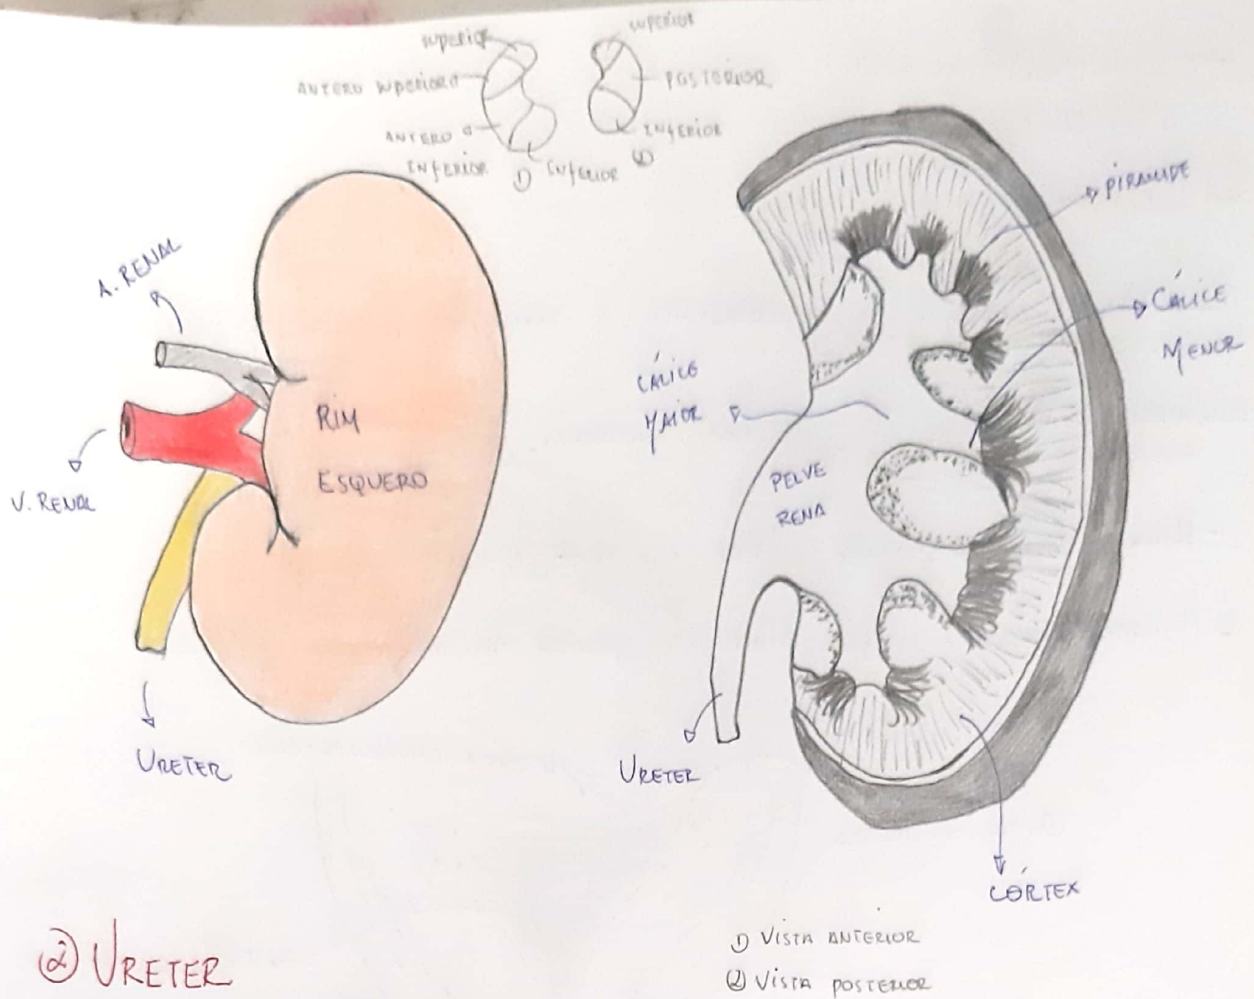 SUPERIOR
ANTERO SUPERIOR
ANTERO
INFERIOR
1) INFERIOR
SUPERIOR
POSTERIOR
INFERIOR
2)
A. RENAL
V. RENAL
RIM
ESQUERO
URETER
PIRAMIDE
CÁLICE
MENOR
CÁLICE
MAIOR
PELVE
RENA
URETER
CÓRTEX
2) URETER
1) VISTA ANTERIOR
2) VISTA POSTERIOR